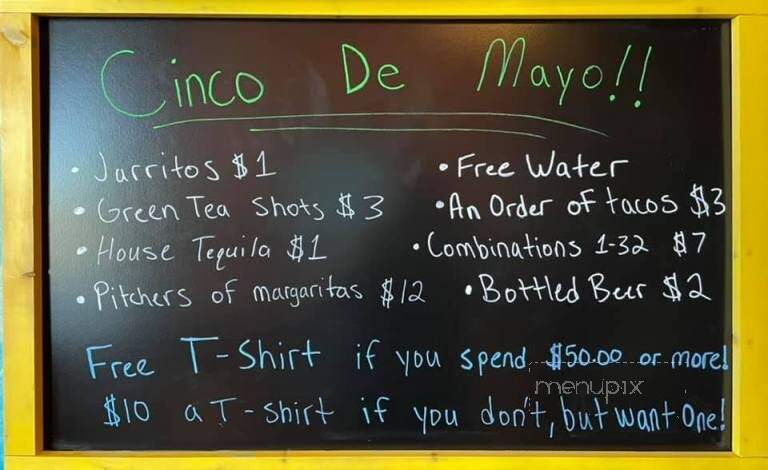 Cinco De Mayo!!
• Jarritos $1
• Green Tea Shots $3
• House Tequila $1
• Pitchers of margaritas $12
• Free Water
• An Order of tacos $3
• Combinations 1-32 $7
• Bottled Beer $2
Free T-Shirt if you spend $50.00 or more!
menupix
$10 a T-shirt if you don't, but want One!